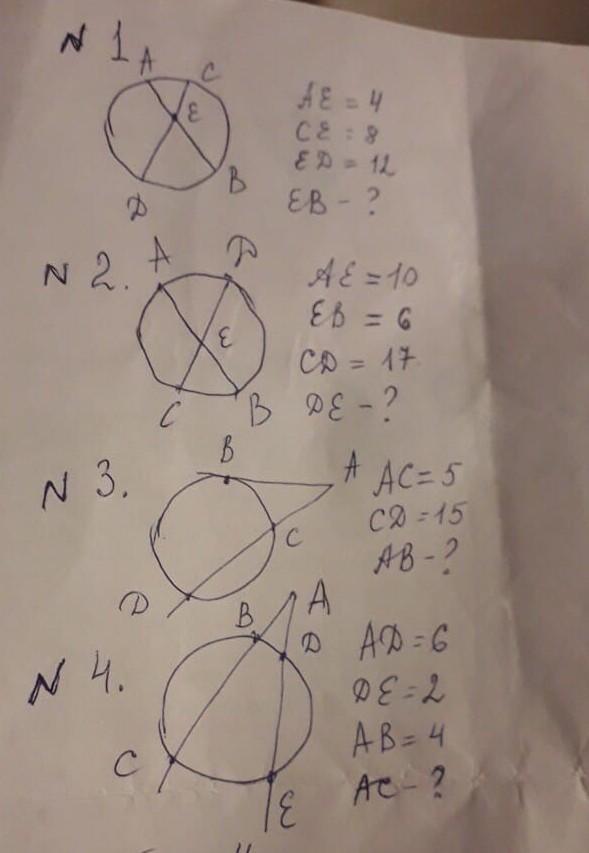 N 1
A C
E
D B
AE = 4
CE = 8
ED = 12
EB - ?
N 2.
A D
E
C B
AE = 10
EB = 6
CD = 17
DE - ?
N 3.
B A
C
D
AC = 5
CD = 15
AB - ?
N 4.
B A
D
C
E
AD = 6
DE = 2
AB = 4
AC - ?